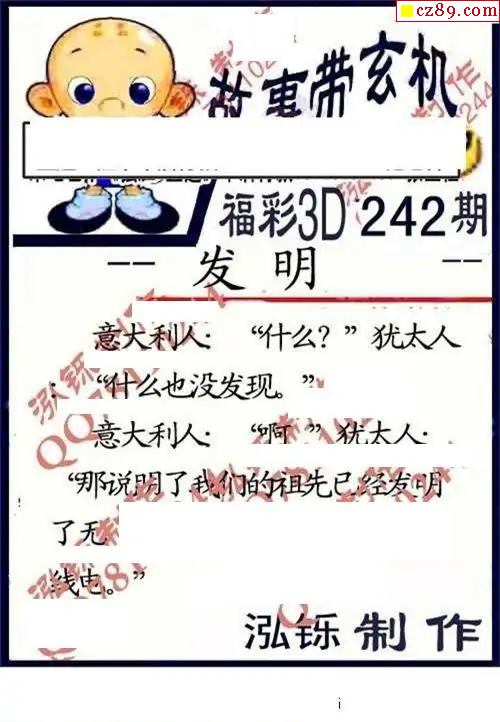 cz89.com
故事带玄机
福彩3D 242期
-- 发 明 --
意大利人：“什么？”犹太人
：“什么也没发现。”
意大利人：“啊 ”犹太人：
“那说明了我们的祖先已经发明
了无
线电。”
泓铄制作
i